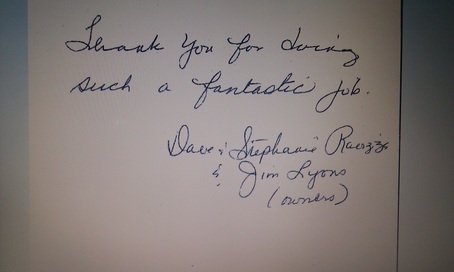 Thank You for doing
such a fantastic job.
Dave & Stephanie
& Jim Lyons
(owners)